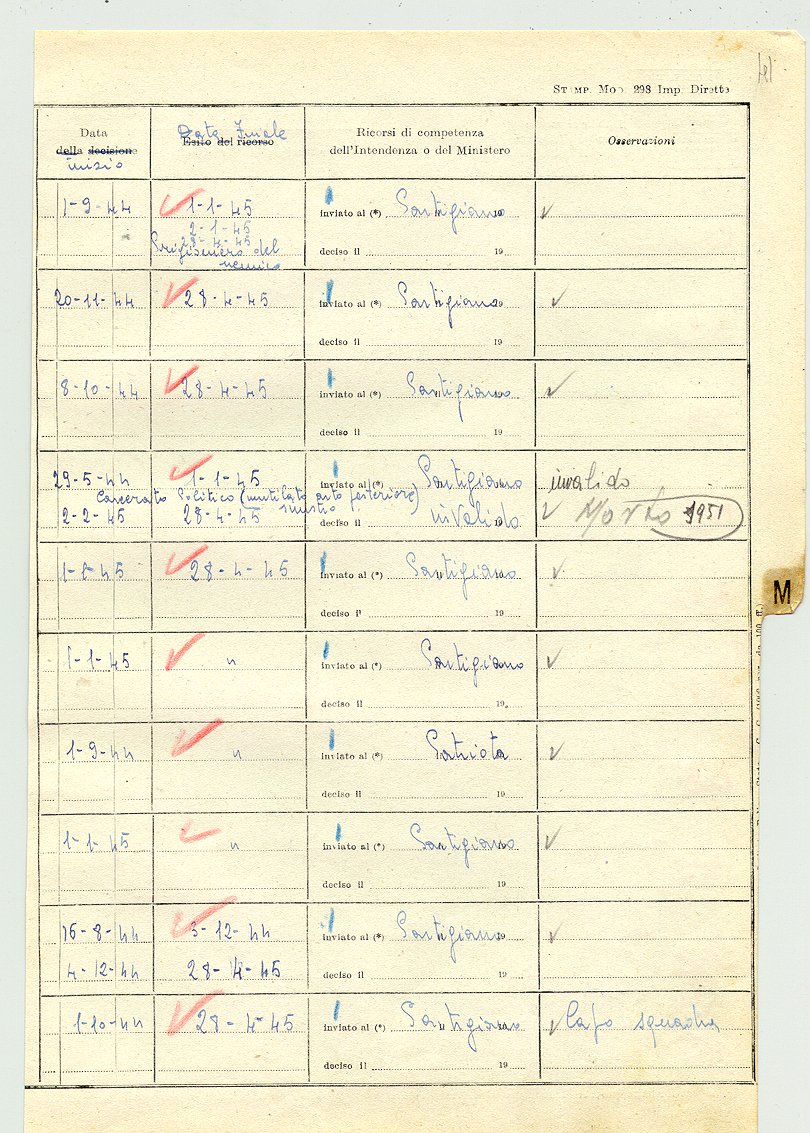 STAMP. MOD. 298 Imp. Dirette
Data
della decisione
inizio
Data Finale
Esito del ricorso
Ricorsi di competenza
dell'Intendenza o del Ministero
Osservazioni
1-9-44 1-1-45 inviato al (*) Partigiano 19
2-1-45
28-4-45
Prigioniero del
nemico
deciso il 19
20-11-44 28-4-45 inviato al (*) Partigiano 19
deciso il 19
8-10-44 28-4-45 inviato al (*) Partigiano
deciso il 19
29-5-44 1-1-45 inviato al (*) Partigiano invalido
Carcerato Politico (mutilato arto posteriore)
sinistro
2-2-45 28-4-45 deciso il invalido 19 Morto 1951
1-1-45 28-4-45 inviato al (*) Partigiano
deciso il 19
M
1-1-45 " inviato al (*) Partigiano
deciso il 19
1-9-44 " inviato al (*) Patriota
deciso il 19
1-1-45 " inviato al (*) Partigiano
deciso il 19
16-8-44 3-12-44 inviato al (*) Partigiano 19
4-12-44 28-4-45 deciso il 19
1-10-44 28-4-45 inviato al (*) Partigiano Capo squadra
deciso il 19